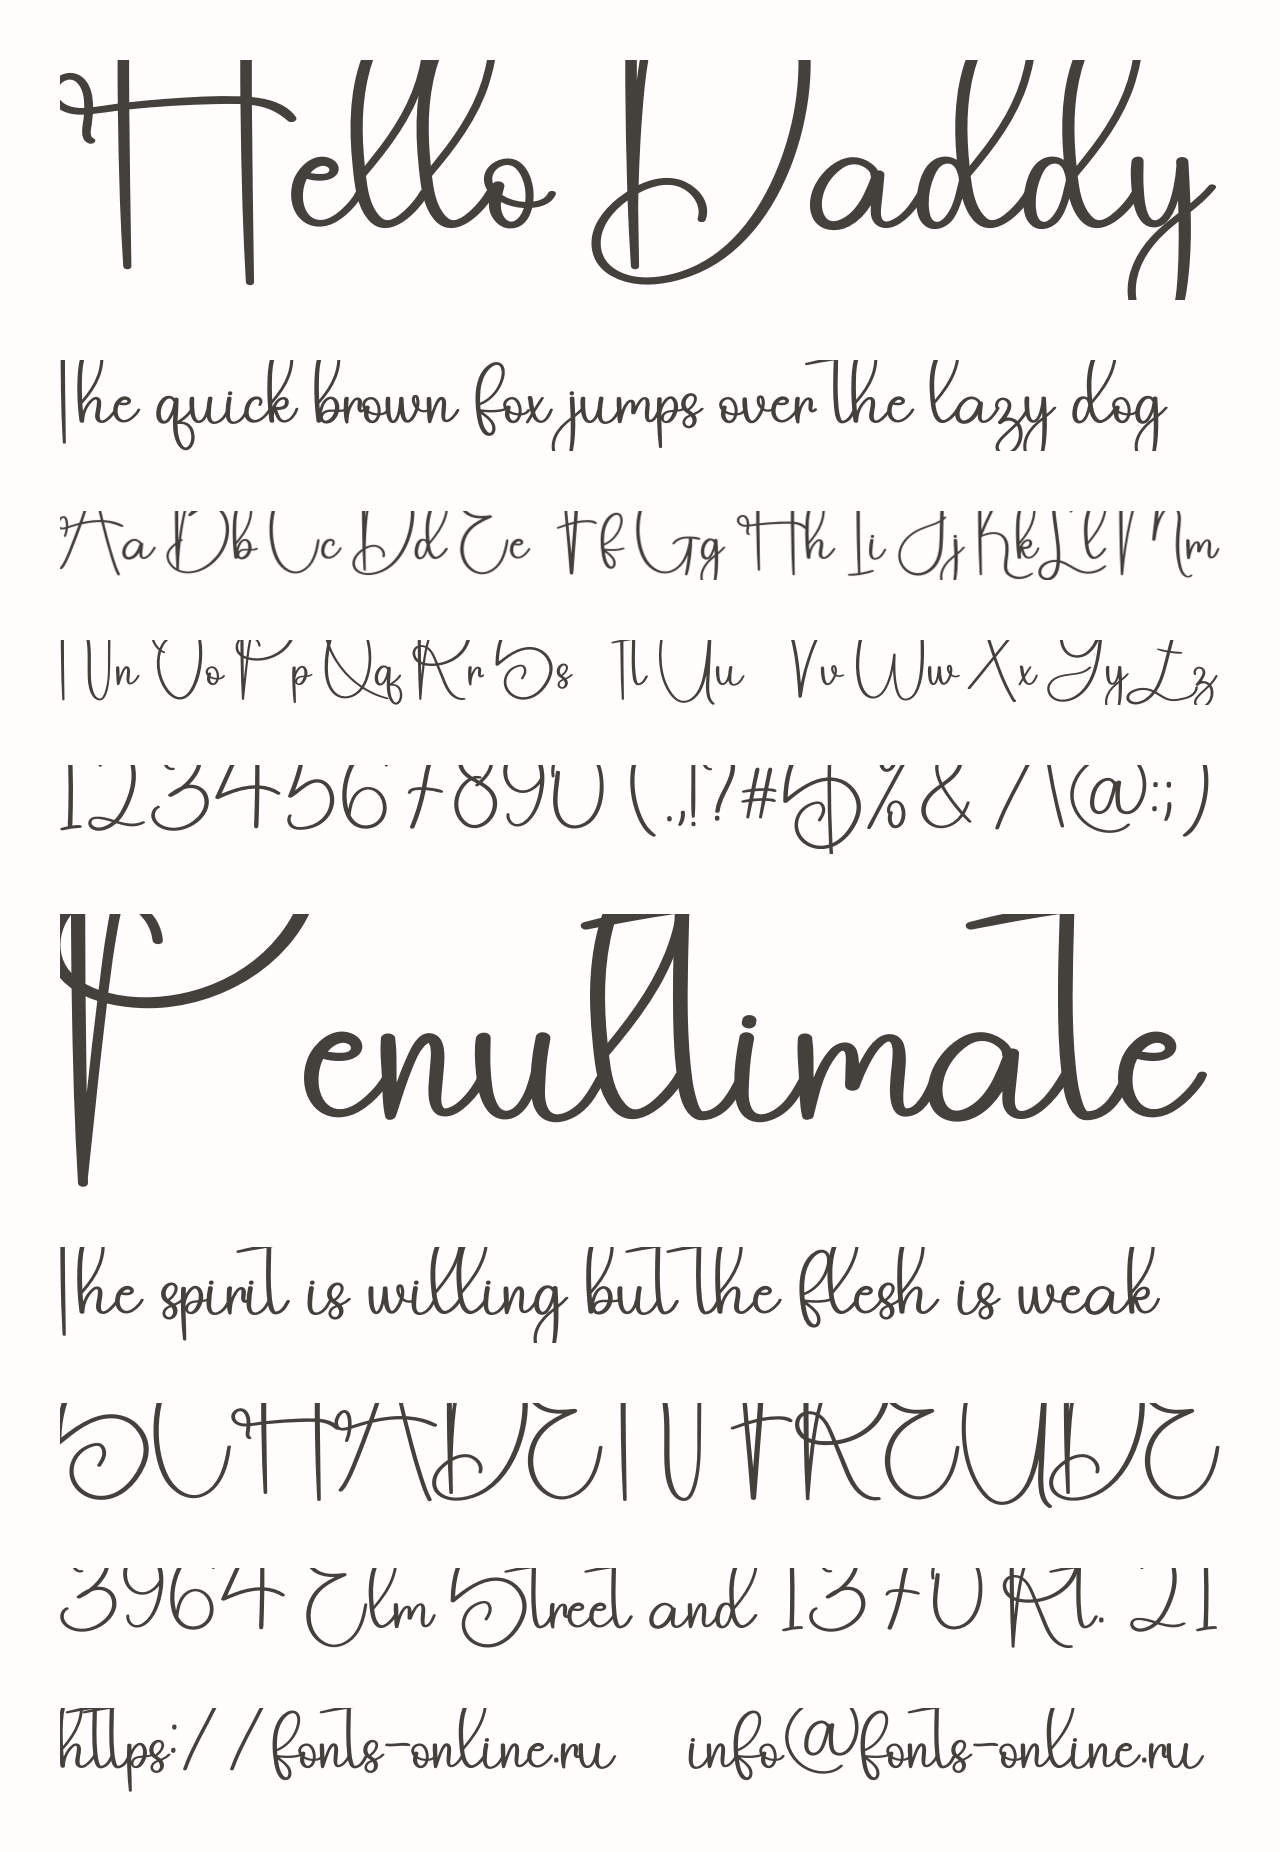 Hello Daddy
The quick brown fox jumps over the lazy dog
Aa Bb Cc Dd Ee Ff Gg Hh Ii Jj Kk Ll Mm
Nn Oo Pp Qq Rr Ss Tt Uu Vv Ww Xx Yy Zz
1234567890 (.,!?#$%& /\@:;)
Penultimate
The spirit is willing but the flesh is weak
SCHADENFREUDE
3964 Elm Street and 1370 Rt. 21
https://fonts-online.ru info@fonts-online.ru